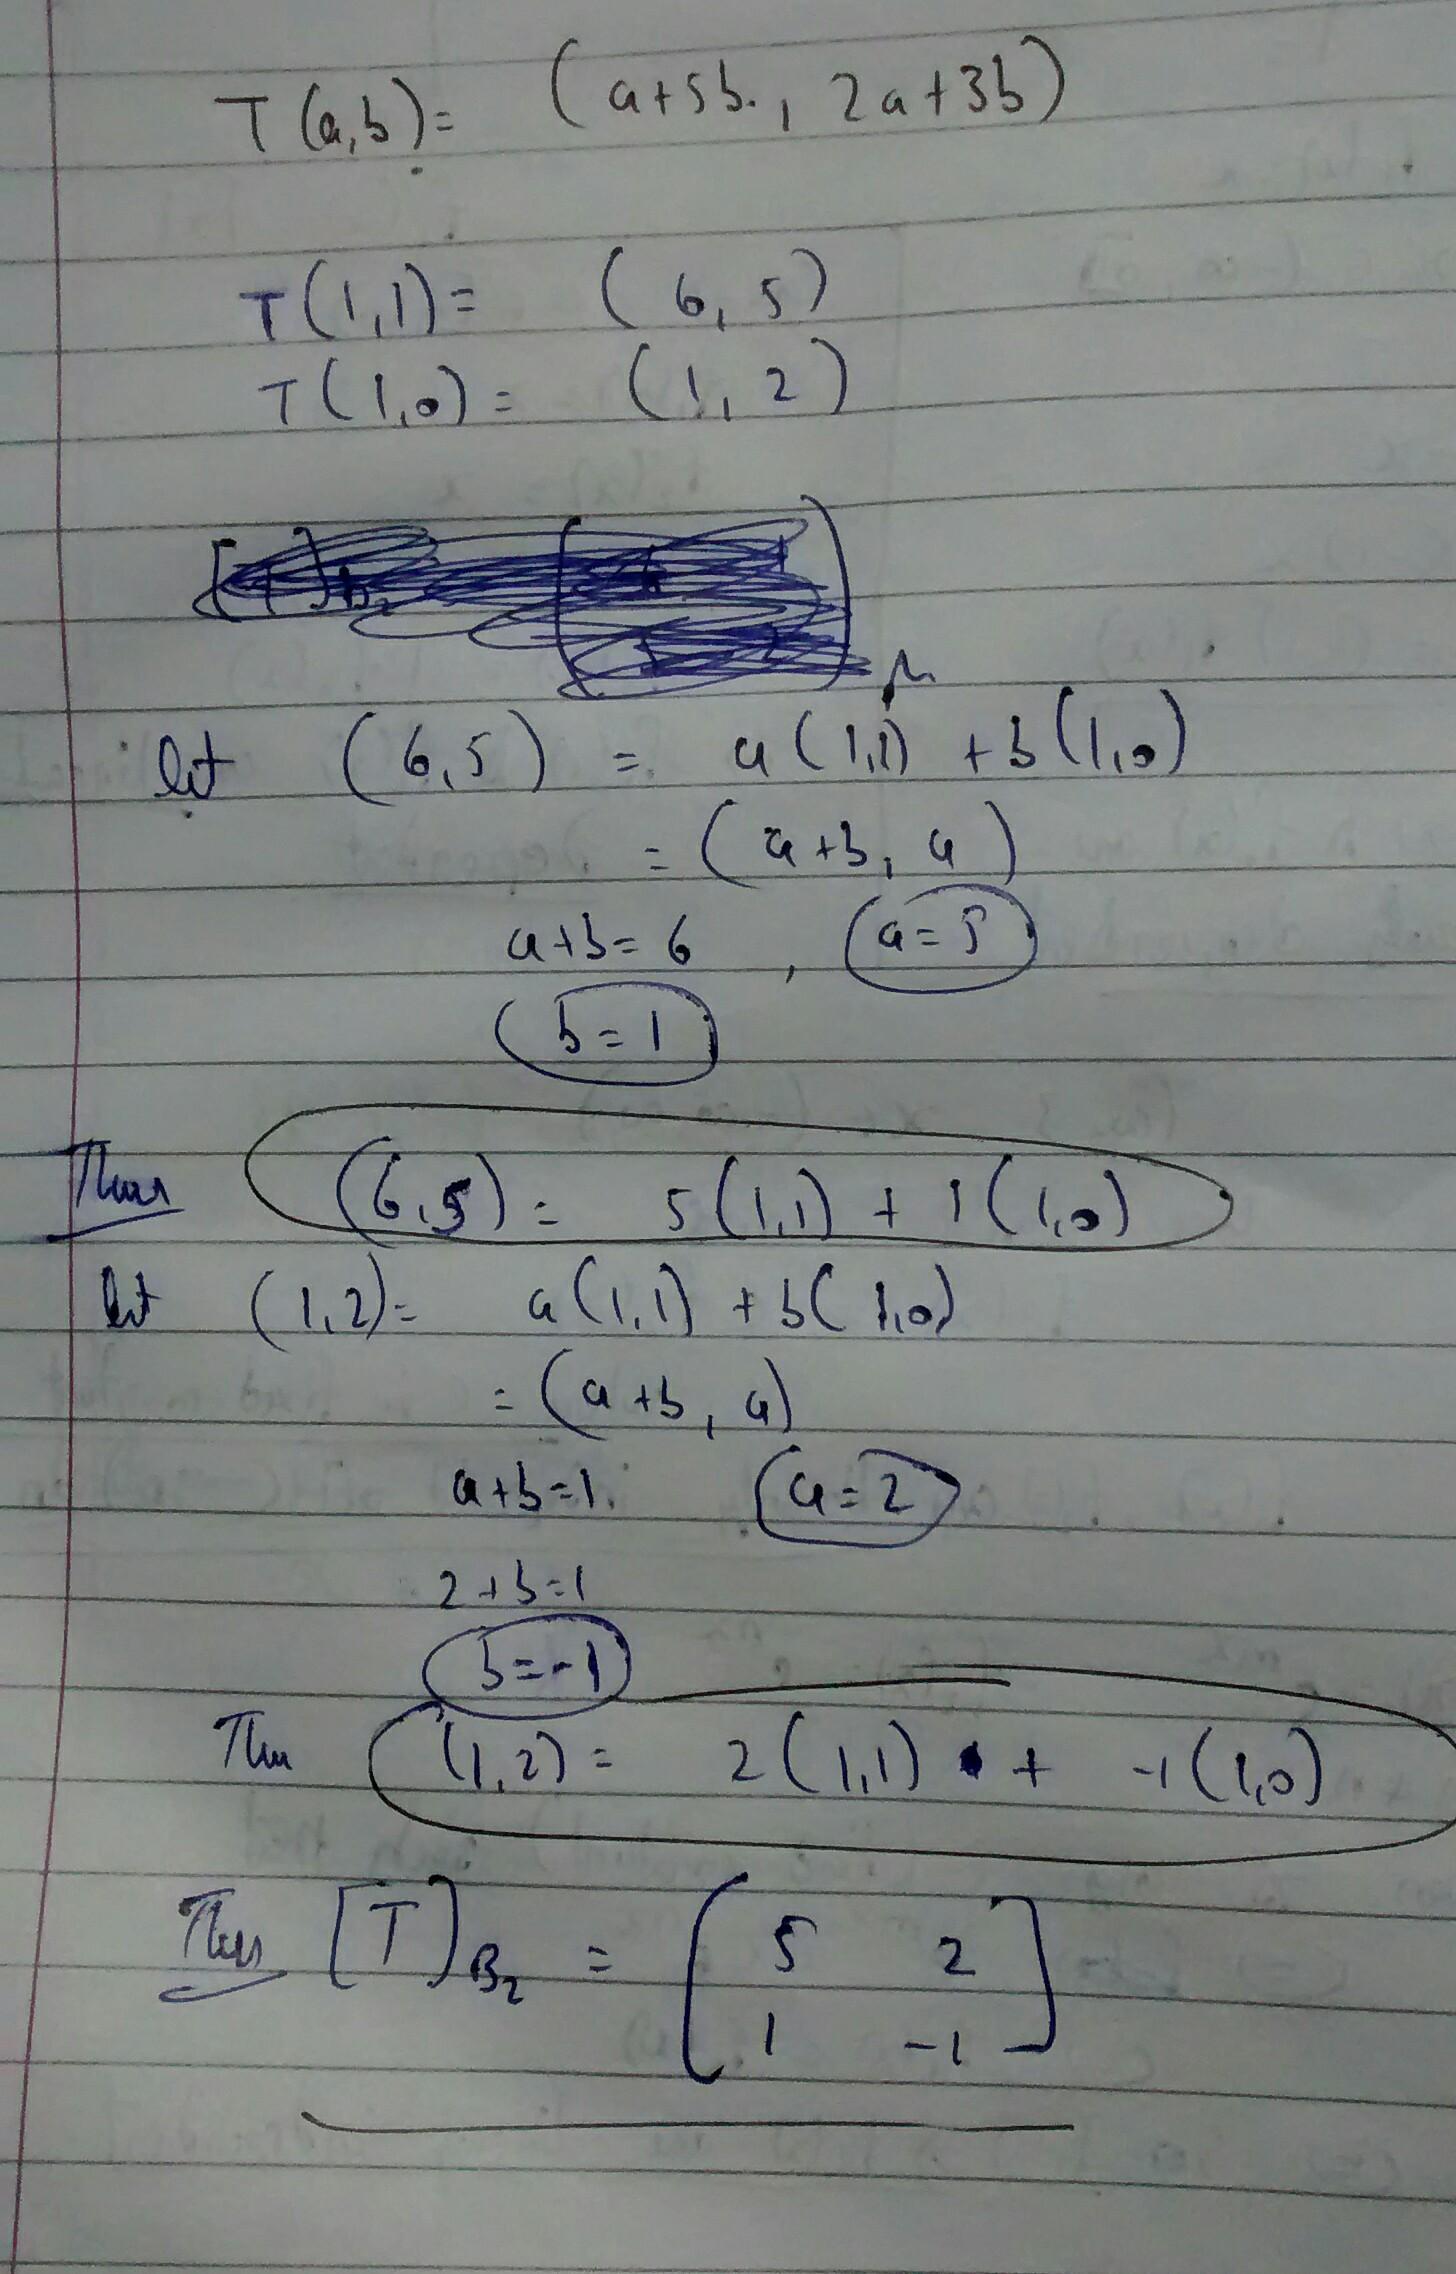 T(a,b) = (a+5b, 2a+3b)
T(1,1) = (6,5)
T(1,0) = (1,2)
let (6,5) = a(1,1) + b(1,0)
= (a+b, a)
a+b=6 , a=5
b=1
Thus (6,5) = 5(1,1) + 1(1,0)
let (1,2) = a(1,1) + b(1,0)
= (a+b, a)
a+b=1. a=2
2+b=1
b=-1
Thu (1,2) = 2(1,1) + -1(1,0)
Thus [T]B₂ = [5 2
1 -1]